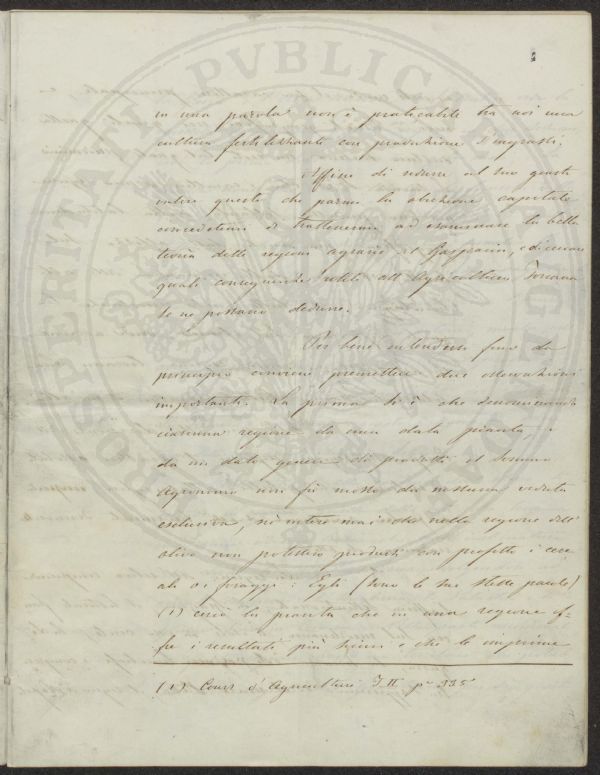 in una parola non è praticabile tra noi una
cultura fertilizzante con produzione d'ingrassi.
Affine di ridurre al suo giusto
valore questa che parmi la obiezione capitale
concedetemi di trattenermi ad esaminare la bella
teoria delle regioni agrarie di Gasparin, e di cercare
quali conseguenze utili all'Agricoltura Toscana
se ne possano dedurre.
Per bene intenderci fino da
principio conviene premettere due osservazioni
importanti. La prima si è che denominando
ciascuna regione da una data pianta, o
da un dato genere di prodotti il Sommo
Agronomo non fù mosso da nessuna veduta
esclusiva, nè intese mai che nella regione dell'
olivo non potessero prodursi con profitto i cere
ali o i foraggi: Egli (sono le sue stesse parole)
(1) cercò la pianta che in una regione of-
fre i resultati più sicuri e che le imprime
(1) Cours d'Agriculture T. II pe 335
PROSPERITATI PVBLICAE AVGENDAE